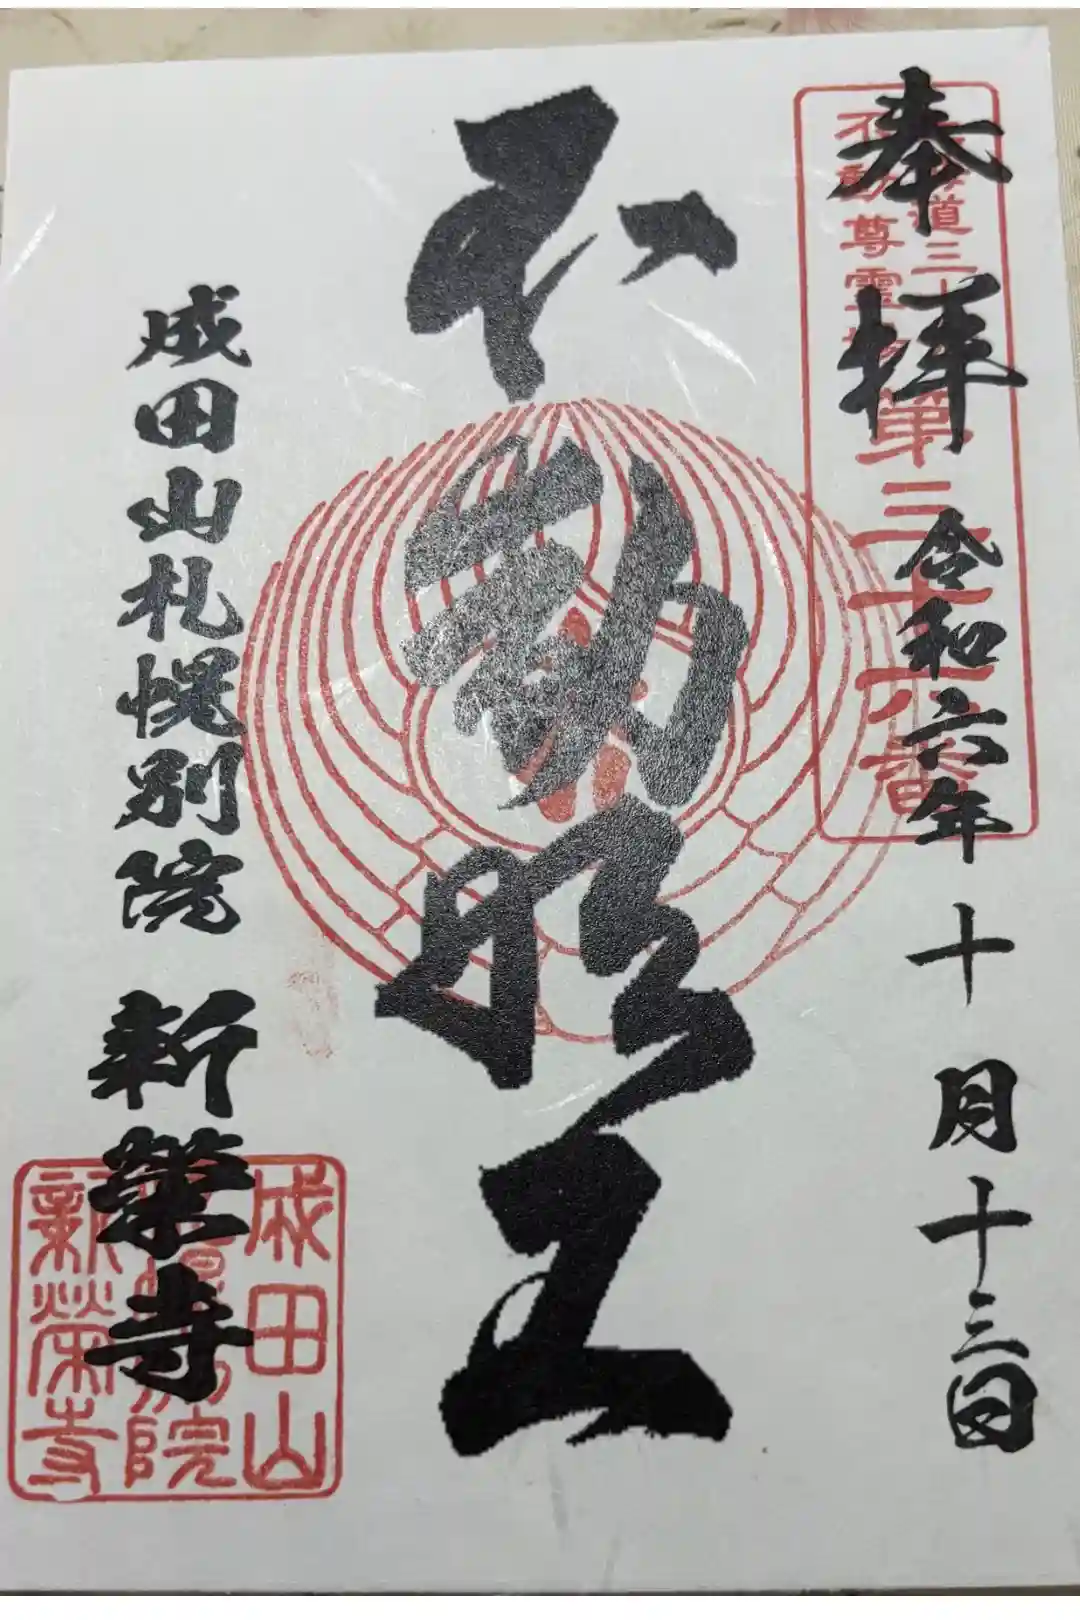 奉拝
令和六年十月十三日
道三十
不動尊霊場
第三十三番
不動明王
成田山札幌別院
新榮寺
成田山
院
新榮寺